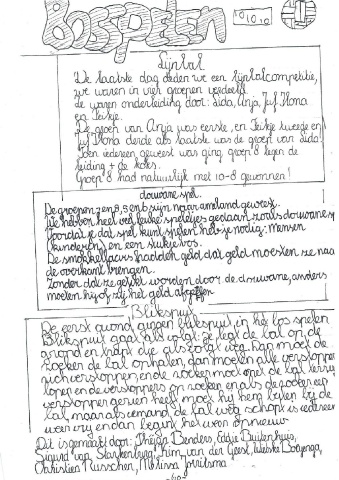 Bosspelen
10 10 10
Lijnbal
De laatste dag deden we een lijnbalcompetitie,
we waren in vier groepen verdeeld.
de waren onderleiding door: Sida, Anja, Juf Ilona
en Tsitske.
De groep van Anja was eerste, en Tsitske tweede en
Juf Ilona derde als laatste was de groep van Sida.
Toen iedereen geweest was ging groep 8 tegen de
leiding + de koks.
Groep 8 had natuurlijk met 10-8 gewonnen!
douane spel.
De groepen 7 en 8, 5 en 6 zijn naar ameland geweest.
We hebben heel veel leuke spelletjes gedaan zoals douanespel
Voordat je dat spel kunt spelen heb je nodig: mensen
(kinderen) en een stukje bos.
De smokkelaars hadden geld, dat geld moesten ze naar
de overkant brengen.
Zonder dat ze getikt worden door de douane, anders
moeten hij of zij het geld afgeven
Blikspuit
De eerst avond gingen blikspuit, in het bos spelen
Blikspuit gaat als volgt: je legt de bal op de
grond en trapt die allerrot weg. Dan moet de
zoeker de bal ophalen, dan moeten alle verstoppers
zich verstoppen, en de zoeker moet met de bal terug
lopen en de verstoppers op zoeken en als de zoeker een
verstopper gezien heeft moet hij hem bijten bij de
bal maar als iemand de bal weg schopt is iedereen
weer vrij en dan begint het weer opnieuw
Dit is gemaakt door: Thirza Benders, Eddie Buitenhuis,
Sigurd van Slaykenburg, Kim van der Geest, Wietske Booyenga,
Christien Russchen, Melissa Jorritsma